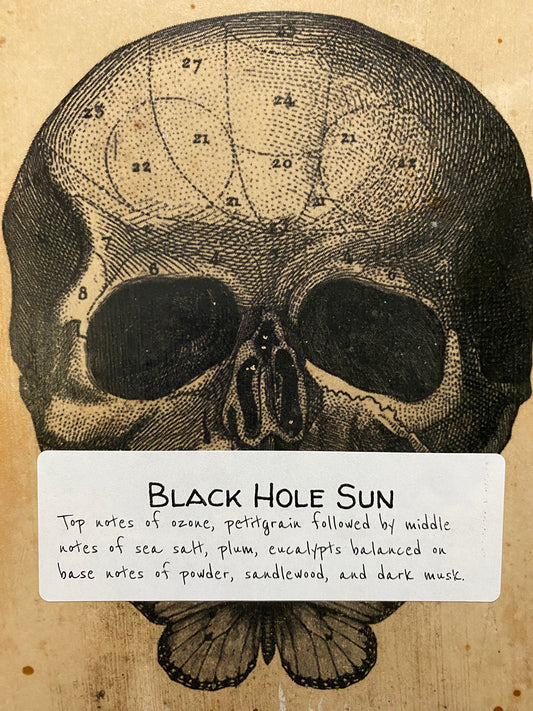 27
24
23
21
21
22
20
22
21
7
8
4
4
8
BLACK HOLE SUN
Top notes of ozone, petitgrain followed by middle
notes of sea salt, plum, eucalypts balanced on
base notes of powder, sandlewood, and dark musk.